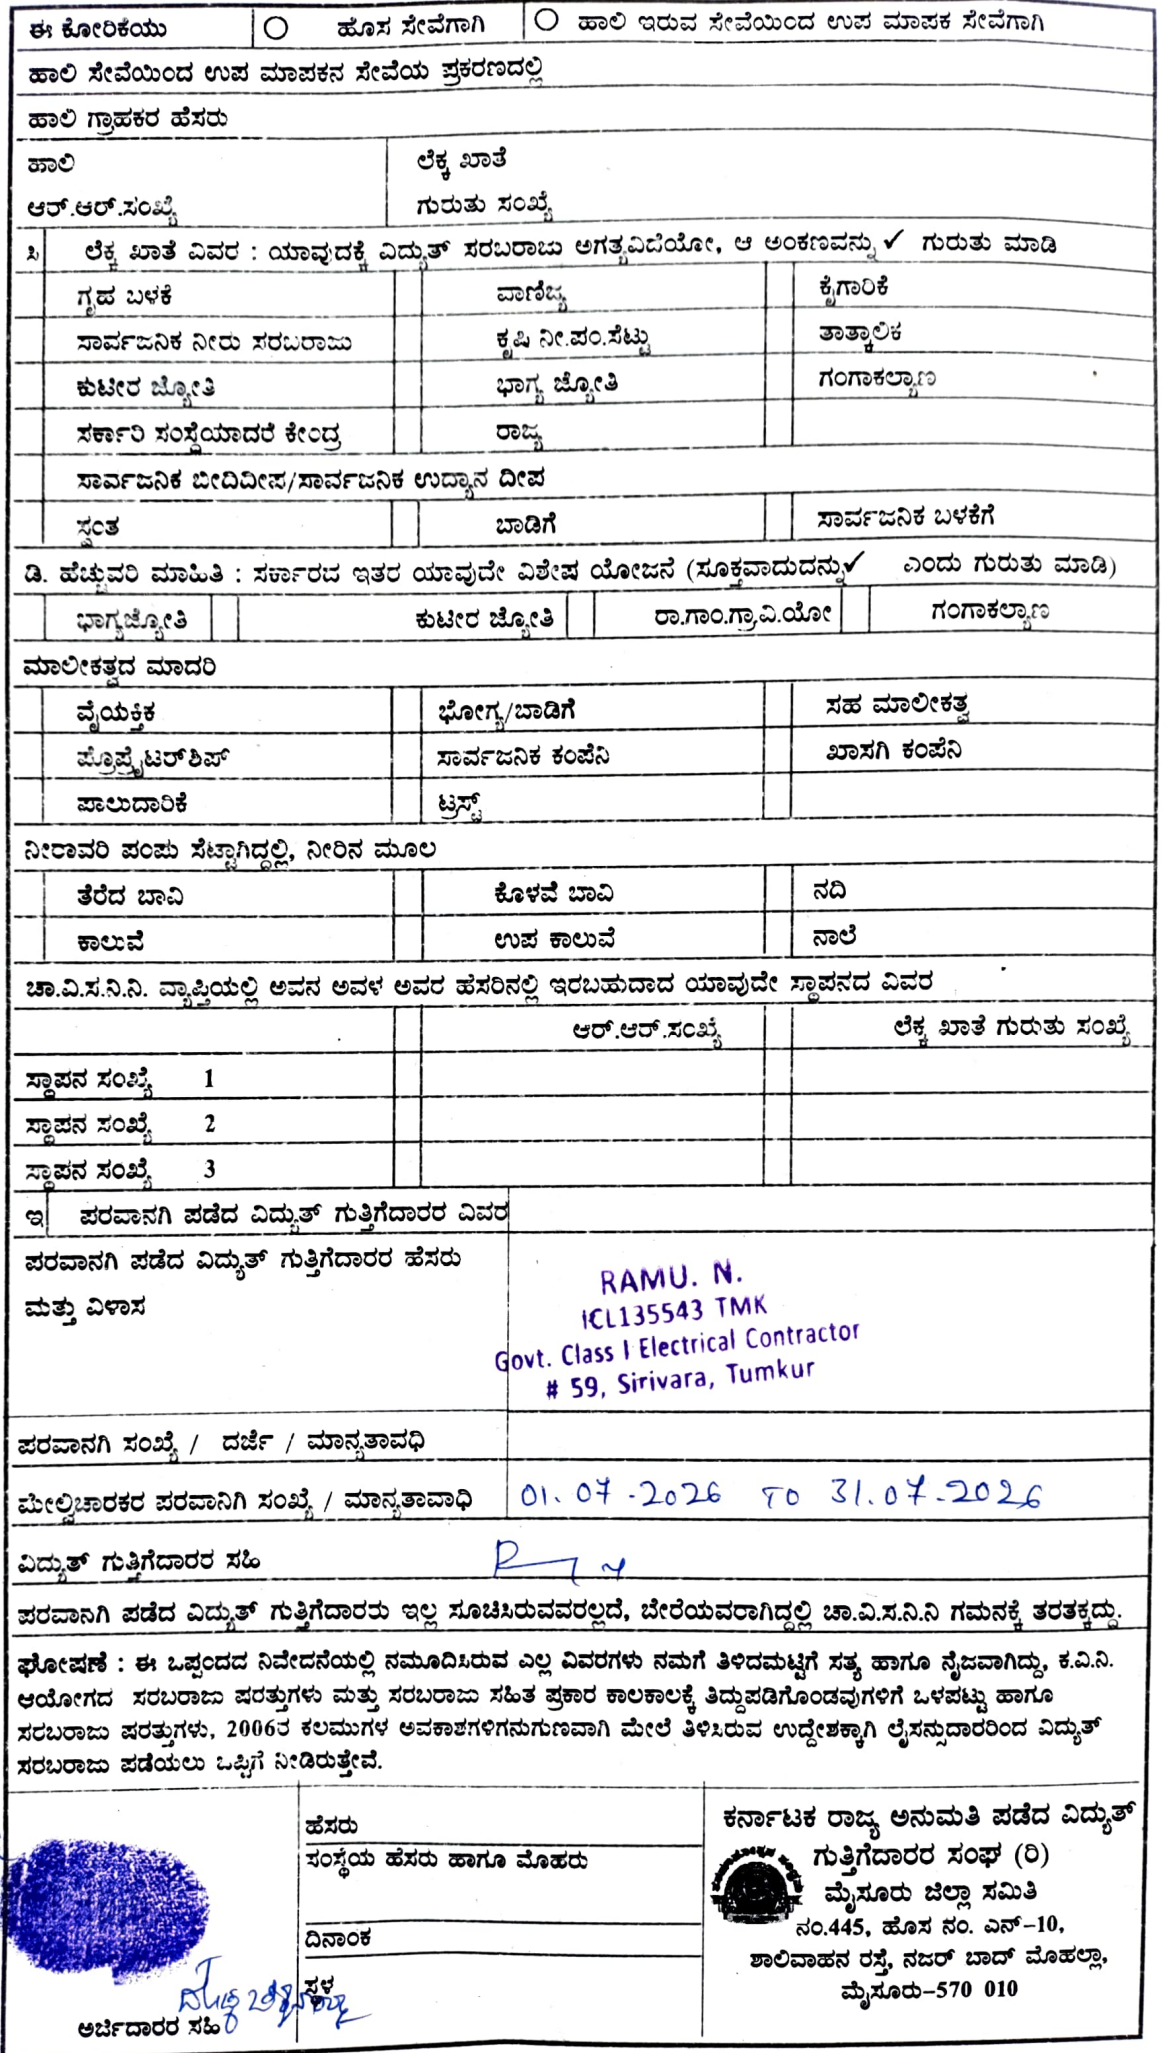 ಈ ಕೋರಿಕೆಯು ಹೊಸ ಸೇವೆಗಾಗಿ ಹಾಲಿ ಇರುವ ಸೇವೆಯಿಂದ ಉಪ ಮಾಪಕ ಸೇವೆಗಾಗಿ
ಹಾಲಿ ಸೇವೆಯಿಂದ ಉಪ ಮಾಪಕನ ಸೇವೆಯ ಪ್ರಕರಣದಲ್ಲಿ
ಹಾಲಿ ಗ್ರಾಹಕರ ಹೆಸರು
ಹಾಲಿ ಲೆಕ್ಕ ಖಾತೆ
ಆರ್.ಆರ್.ಸಂಖ್ಯೆ ಗುರುತು ಸಂಖ್ಯೆ
ಸಿ ಲೆಕ್ಕ ಖಾತೆ ವಿವರ : ಯಾವುದಕ್ಕೆ ವಿದ್ಯುತ್ ಸರಬರಾಜು ಅಗತ್ಯವಿದೆಯೋ, ಆ ಅಂಕಣವನ್ನು ✓ ಗುರುತು ಮಾಡಿ
ಗೃಹ ಬಳಕೆ ವಾಣಿಜ್ಯ ಕೈಗಾರಿಕೆ
ಸಾರ್ವಜನಿಕ ನೀರು ಸರಬರಾಜು ಕೃಷಿ ನೀ.ಪಂ.ಸೆಟ್ಟು ತಾತ್ಕಾಲಿಕ
ಕುಟೀರ ಜ್ಯೋತಿ ಭಾಗ್ಯ ಜ್ಯೋತಿ ಗಂಗಾಕಲ್ಯಾಣ
ಸರ್ಕಾರಿ ಸಂಸ್ಥೆಯಾದರೆ ಕೇಂದ್ರ ರಾಜ್ಯ
ಸಾರ್ವಜನಿಕ ಬೀದಿದೀಪ/ಸಾರ್ವಜನಿಕ ಉದ್ಯಾನ ದೀಪ
ಸ್ವಂತ ಬಾಡಿಗೆ ಸಾರ್ವಜನಿಕ ಬಳಕೆಗೆ
ಡಿ. ಹೆಚ್ಚುವರಿ ಮಾಹಿತಿ : ಸರ್ಕಾರದ ಇತರ ಯಾವುದೇ ವಿಶೇಷ ಯೋಜನೆ (ಸೂಕ್ತವಾದುದನ್ನು ✓ ಎಂದು ಗುರುತು ಮಾಡಿ)
ಭಾಗ್ಯಜ್ಯೋತಿ ಕುಟೀರ ಜ್ಯೋತಿ ರಾ.ಗಾಂ.ಗ್ರಾ.ವಿ.ಯೋ ಗಂಗಾಕಲ್ಯಾಣ
ಮಾಲೀಕತ್ವದ ಮಾದರಿ
ವೈಯಕ್ತಿಕ ಭೋಗ್ಯ/ಬಾಡಿಗೆ ಸಹ ಮಾಲೀಕತ್ವ
ಪ್ರೊಪ್ರೈಟರ್‌ಶಿಪ್ ಸಾರ್ವಜನಿಕ ಕಂಪೆನಿ ಖಾಸಗಿ ಕಂಪೆನಿ
ಪಾಲುದಾರಿಕೆ ಟ್ರಸ್ಟ್
ನೀರಾವರಿ ಪಂಪು ಸೆಟ್ಟಾಗಿದ್ದಲ್ಲಿ, ನೀರಿನ ಮೂಲ
ತೆರೆದ ಬಾವಿ ಕೊಳವೆ ಬಾವಿ ನದಿ
ಕಾಲುವೆ ಉಪ ಕಾಲುವೆ ನಾಲೆ
ಚಾ.ವಿ.ಸ.ನಿ.ನಿ. ವ್ಯಾಪ್ತಿಯಲ್ಲಿ ಅವನ ಅವಳ ಅವರ ಹೆಸರಿನಲ್ಲಿ ಇರಬಹುದಾದ ಯಾವುದೇ ಸ್ಥಾಪನದ ವಿವರ
ಆರ್.ಆರ್.ಸಂಖ್ಯೆ ಲೆಕ್ಕ ಖಾತೆ ಗುರುತು ಸಂಖ್ಯೆ
ಸ್ಥಾಪನ ಸಂಖ್ಯೆ 1
ಸ್ಥಾಪನ ಸಂಖ್ಯೆ 2
ಸ್ಥಾಪನ ಸಂಖ್ಯೆ 3
ಇ ಪರವಾನಗಿ ಪಡೆದ ವಿದ್ಯುತ್ ಗುತ್ತಿಗೆದಾರರ ವಿವರ
ಪರವಾನಗಿ ಪಡೆದ ವಿದ್ಯುತ್ ಗುತ್ತಿಗೆದಾರರ ಹೆಸರು
ಮತ್ತು ವಿಳಾಸ
RAMU. N.
ICL135543 TMK
Govt. Class I Electrical Contractor
# 59, Sirivara, Tumkur
ಪರವಾನಗಿ ಸಂಖ್ಯೆ / ದರ್ಜೆ / ಮಾನ್ಯತಾವಧಿ
ಮೇಲ್ವಿಚಾರಕರ ಪರವಾನಿಗಿ ಸಂಖ್ಯೆ / ಮಾನ್ಯತಾವಾಧಿ 01.07-2026 TO 31.07-2026
ವಿದ್ಯುತ್ ಗುತ್ತಿಗೆದಾರರ ಸಹಿ
ಪರವಾನಗಿ ಪಡೆದ ವಿದ್ಯುತ್ ಗುತ್ತಿಗೆದಾರರು ಇಲ್ಲ ಸೂಚಿಸಿರುವವರಲ್ಲದೆ, ಬೇರೆಯವರಾಗಿದ್ದಲ್ಲಿ ಚಾ.ವಿ.ಸ.ನಿ.ನಿ ಗಮನಕ್ಕೆ ತರತಕ್ಕದ್ದು.
ಘೋಷಣೆ : ಈ ಒಪ್ಪಂದದ ನಿವೇದನೆಯಲ್ಲಿ ನಮೂದಿಸಿರುವ ಎಲ್ಲ ವಿವರಗಳು ನಮಗೆ ತಿಳಿದಮಟ್ಟಿಗೆ ಸತ್ಯ ಹಾಗೂ ನೈಜವಾಗಿದ್ದು, ಕ.ವಿ.ನಿ.
ಆಯೋಗದ ಸರಬರಾಜು ಷರತ್ತುಗಳು ಮತ್ತು ಸರಬರಾಜು ಸಹಿತ ಪ್ರಕಾರ ಕಾಲಕಾಲಕ್ಕೆ ತಿದ್ದುಪಡಿಗೊಂಡವುಗಳಿಗೆ ಒಳಪಟ್ಟು ಹಾಗೂ
ಸರಬರಾಜು ಷರತ್ತುಗಳು, 2006ರ ಕಲಮುಗಳ ಅವಕಾಶಗಳಿಗನುಗುಣವಾಗಿ ಮೇಲೆ ತಿಳಿಸಿರುವ ಉದ್ದೇಶಕ್ಕಾಗಿ ಲೈಸನ್ಸುದಾರರಿಂದ ವಿದ್ಯುತ್
ಸರಬರಾಜು ಪಡೆಯಲು ಒಪ್ಪಿಗೆ ನೀಡಿರುತ್ತೇವೆ.
ಹೆಸರು
ಸಂಸ್ಥೆಯ ಹೆಸರು ಹಾಗೂ ಮೊಹರು
ದಿನಾಂಕ
ಸ್ಥಳ
ಅರ್ಜಿದಾರರ ಸಹಿ
ಕರ್ನಾಟಕ ರಾಜ್ಯ ಅನುಮತಿ ಪಡೆದ ವಿದ್ಯುತ್
ಗುತ್ತಿಗೆದಾರರ ಸಂಘ (ರಿ)
ಮೈಸೂರು ಜಿಲ್ಲಾ ಸಮಿತಿ
ನಂ.445, ಹೊಸ ನಂ. ಎನ್-10,
ಶಾಲಿವಾಹನ ರಸ್ತೆ, ನಜರ್ ಬಾದ್ ಮೊಹಲ್ಲಾ,
ಮೈಸೂರು-570 010